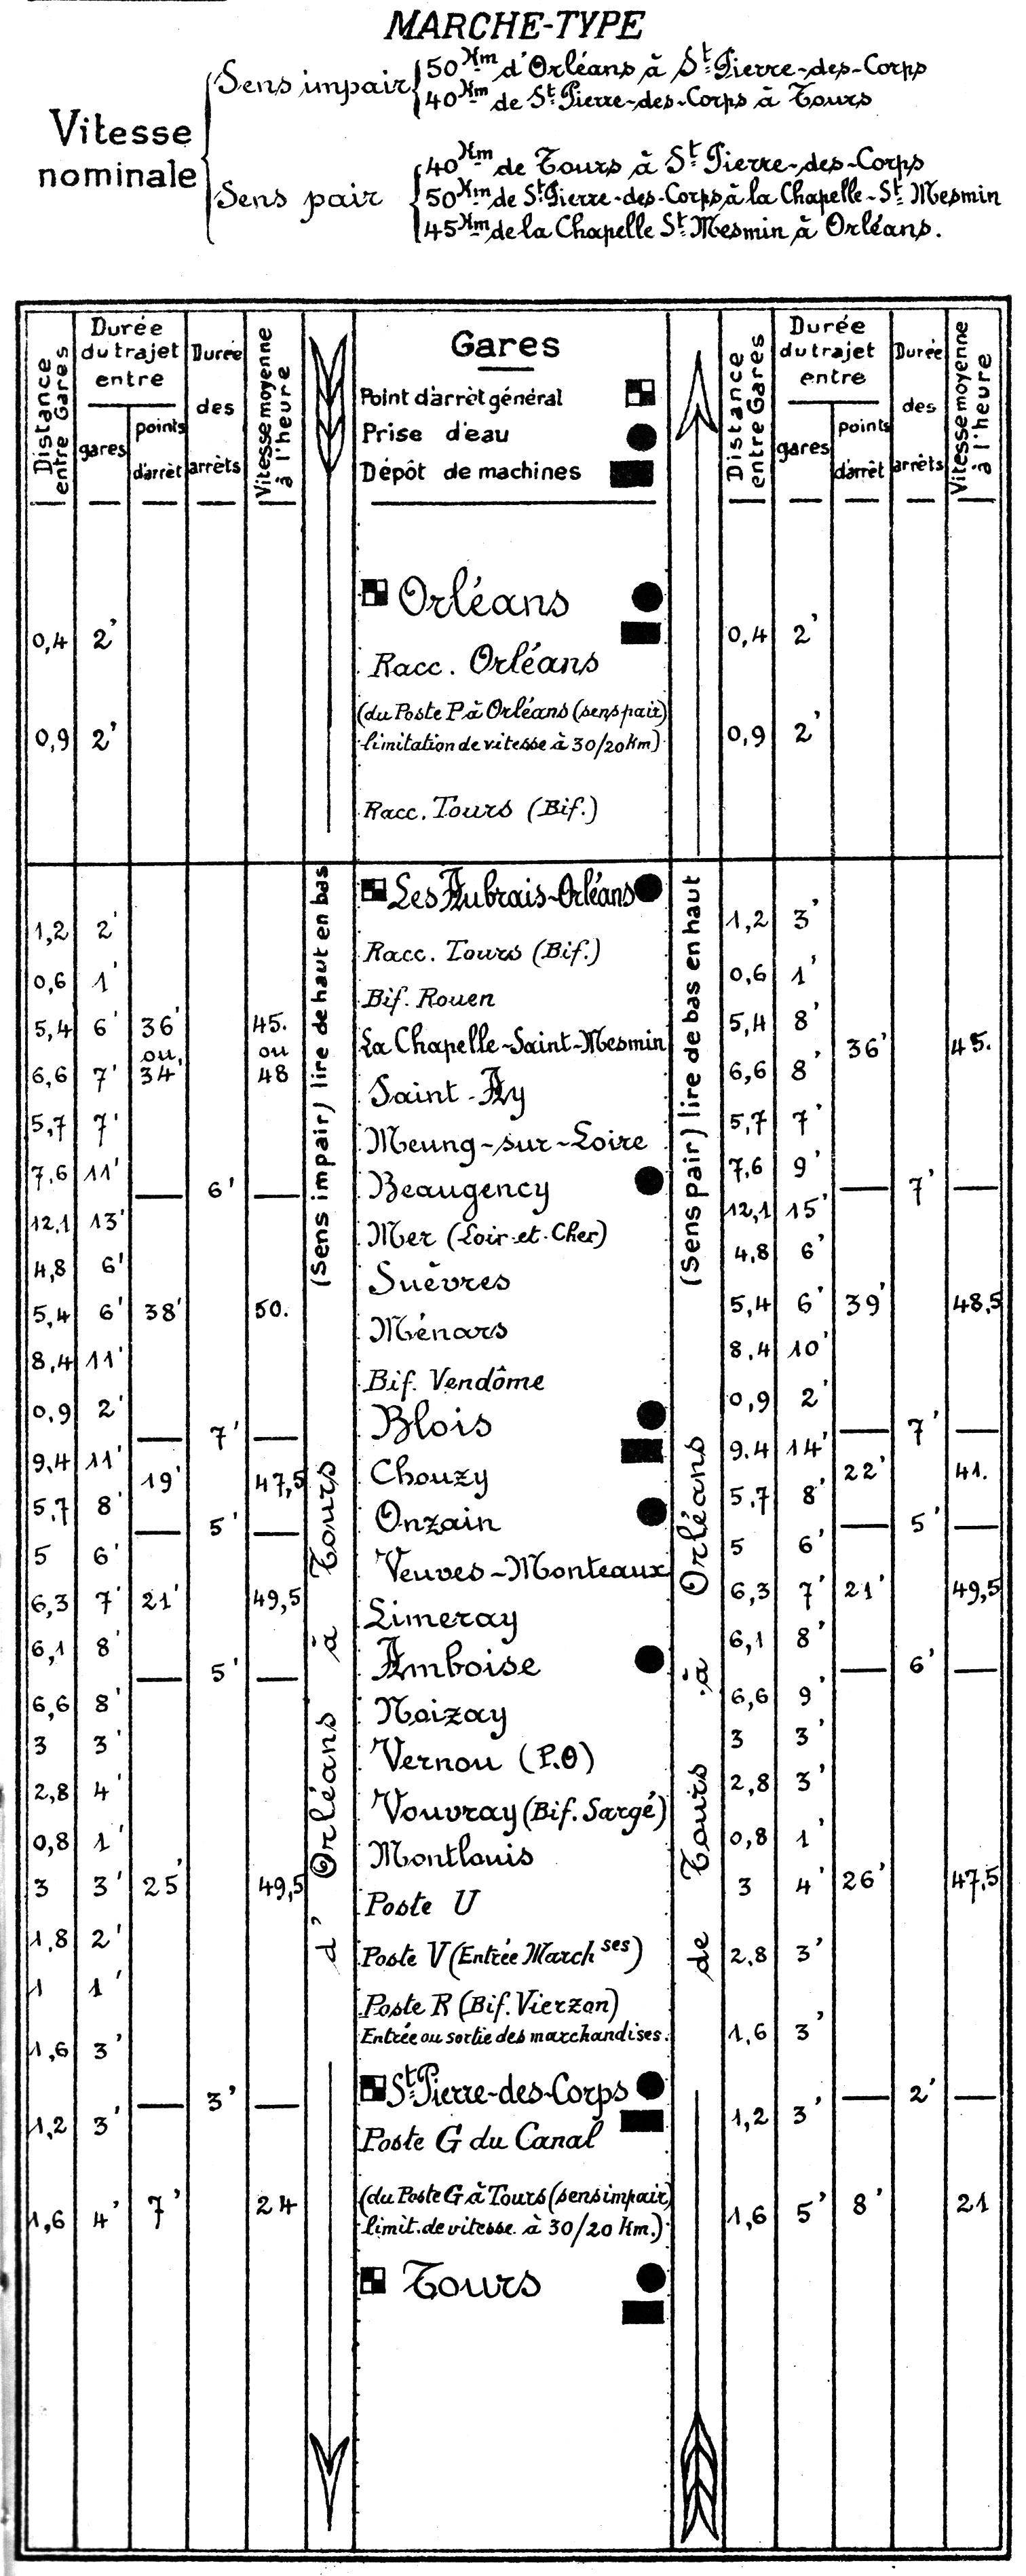 MARCHE-TYPE
Vitesse nominale
Sens impair
50Km d'Orléans à St Pierre-des-Corps
40Km de St Pierre-des-Corps à Tours
Sens pair
40Km de Tours à St Pierre-des-Corps
50Km de St Pierre-des-Corps à la Chapelle-St Mesmin
45Km de la Chapelle St Mesmin à Orléans.
Distance entre Gares
Durée du trajet entre
gares
points d'arrêt
Durée des arrêts
Vitesse moyenne à l'heure
Gares
Point d'arrêt général
Prise d'eau
Dépôt de machines
Distance entre Gares
Durée du trajet entre
gares
points d'arrêt
Durée des arrêts
Vitesse moyenne à l'heure
Orléans
0,4 2' 0,4 2'
Racc. Orléans
(du Poste P à Orléans (sens pair)
0,9 2' limitation de vitesse à 30/20 Km) 0,9 2'
Racc. Tours (Bif.)
(Sens impair) lire de haut en bas
d'Orléans à Tours
(Sens pair) lire de bas en haut
de Tours à Orléans
Les Aubrais-Orléans
1,2 2' 1,2 3'
Racc. Tours (Bif.)
0,6 1' 0,6 1'
Bif. Rouen
5,4 6' 36' ou 34' 45. ou 48 5,4 8' 36' 45.
La Chapelle-Saint-Mesmin
6,6 7' 6,6 8'
Saint-Ay
5,7 7' 5,7 7'
Meung-sur-Loire
7,6 11' 7,6 9'
6' Beaugency 7'
12,1 13' 12,1 15'
Mer (Loir-et-Cher)
4,8 6' 4,8 6'
Suèvres
5,4 6' 38' 50. 5,4 6' 39' 48,5
Ménars
8,4 11' 8,4 10'
Bif. Vendôme
0,9 2' 0,9 2'
7' Blois 7'
9,4 11' 9,4 14'
19' 47,5 Chouzy 22' 41.
5,7 8' 5,7 8'
5' Onzain 5'
5 6' 5 6'
Veuves-Monteaux
6,3 7' 21' 49,5 6,3 7' 21' 49,5
Limeray
6,1 8' 6,1 8'
5' Amboise 6'
6,6 8' 6,6 9'
Noizay
3 3' 3 3'
Vernou (P.O)
2,8 4' 2,8 3'
Vouvray (Bif. Sargé)
0,8 1' 0,8 1'
Montlouis
3 3' 25' 49,5 3 4' 26' 47,5
Poste U
1,8 2' 2,8 3'
Poste V (Entrée Marchses)
1 1'
Poste R (Bif. Vierzon)
Entrée ou sortie des marchandises.
1,6 3' 1,6 3'
3' St Pierre-des-Corps 2'
1,2 3' 1,2 3'
Poste G du Canal
(du Poste G à Tours (sens impair)
1,6 4' 7' 24 limit. de vitesse à 30/20 Km.) 1,6 5' 8' 21
Tours